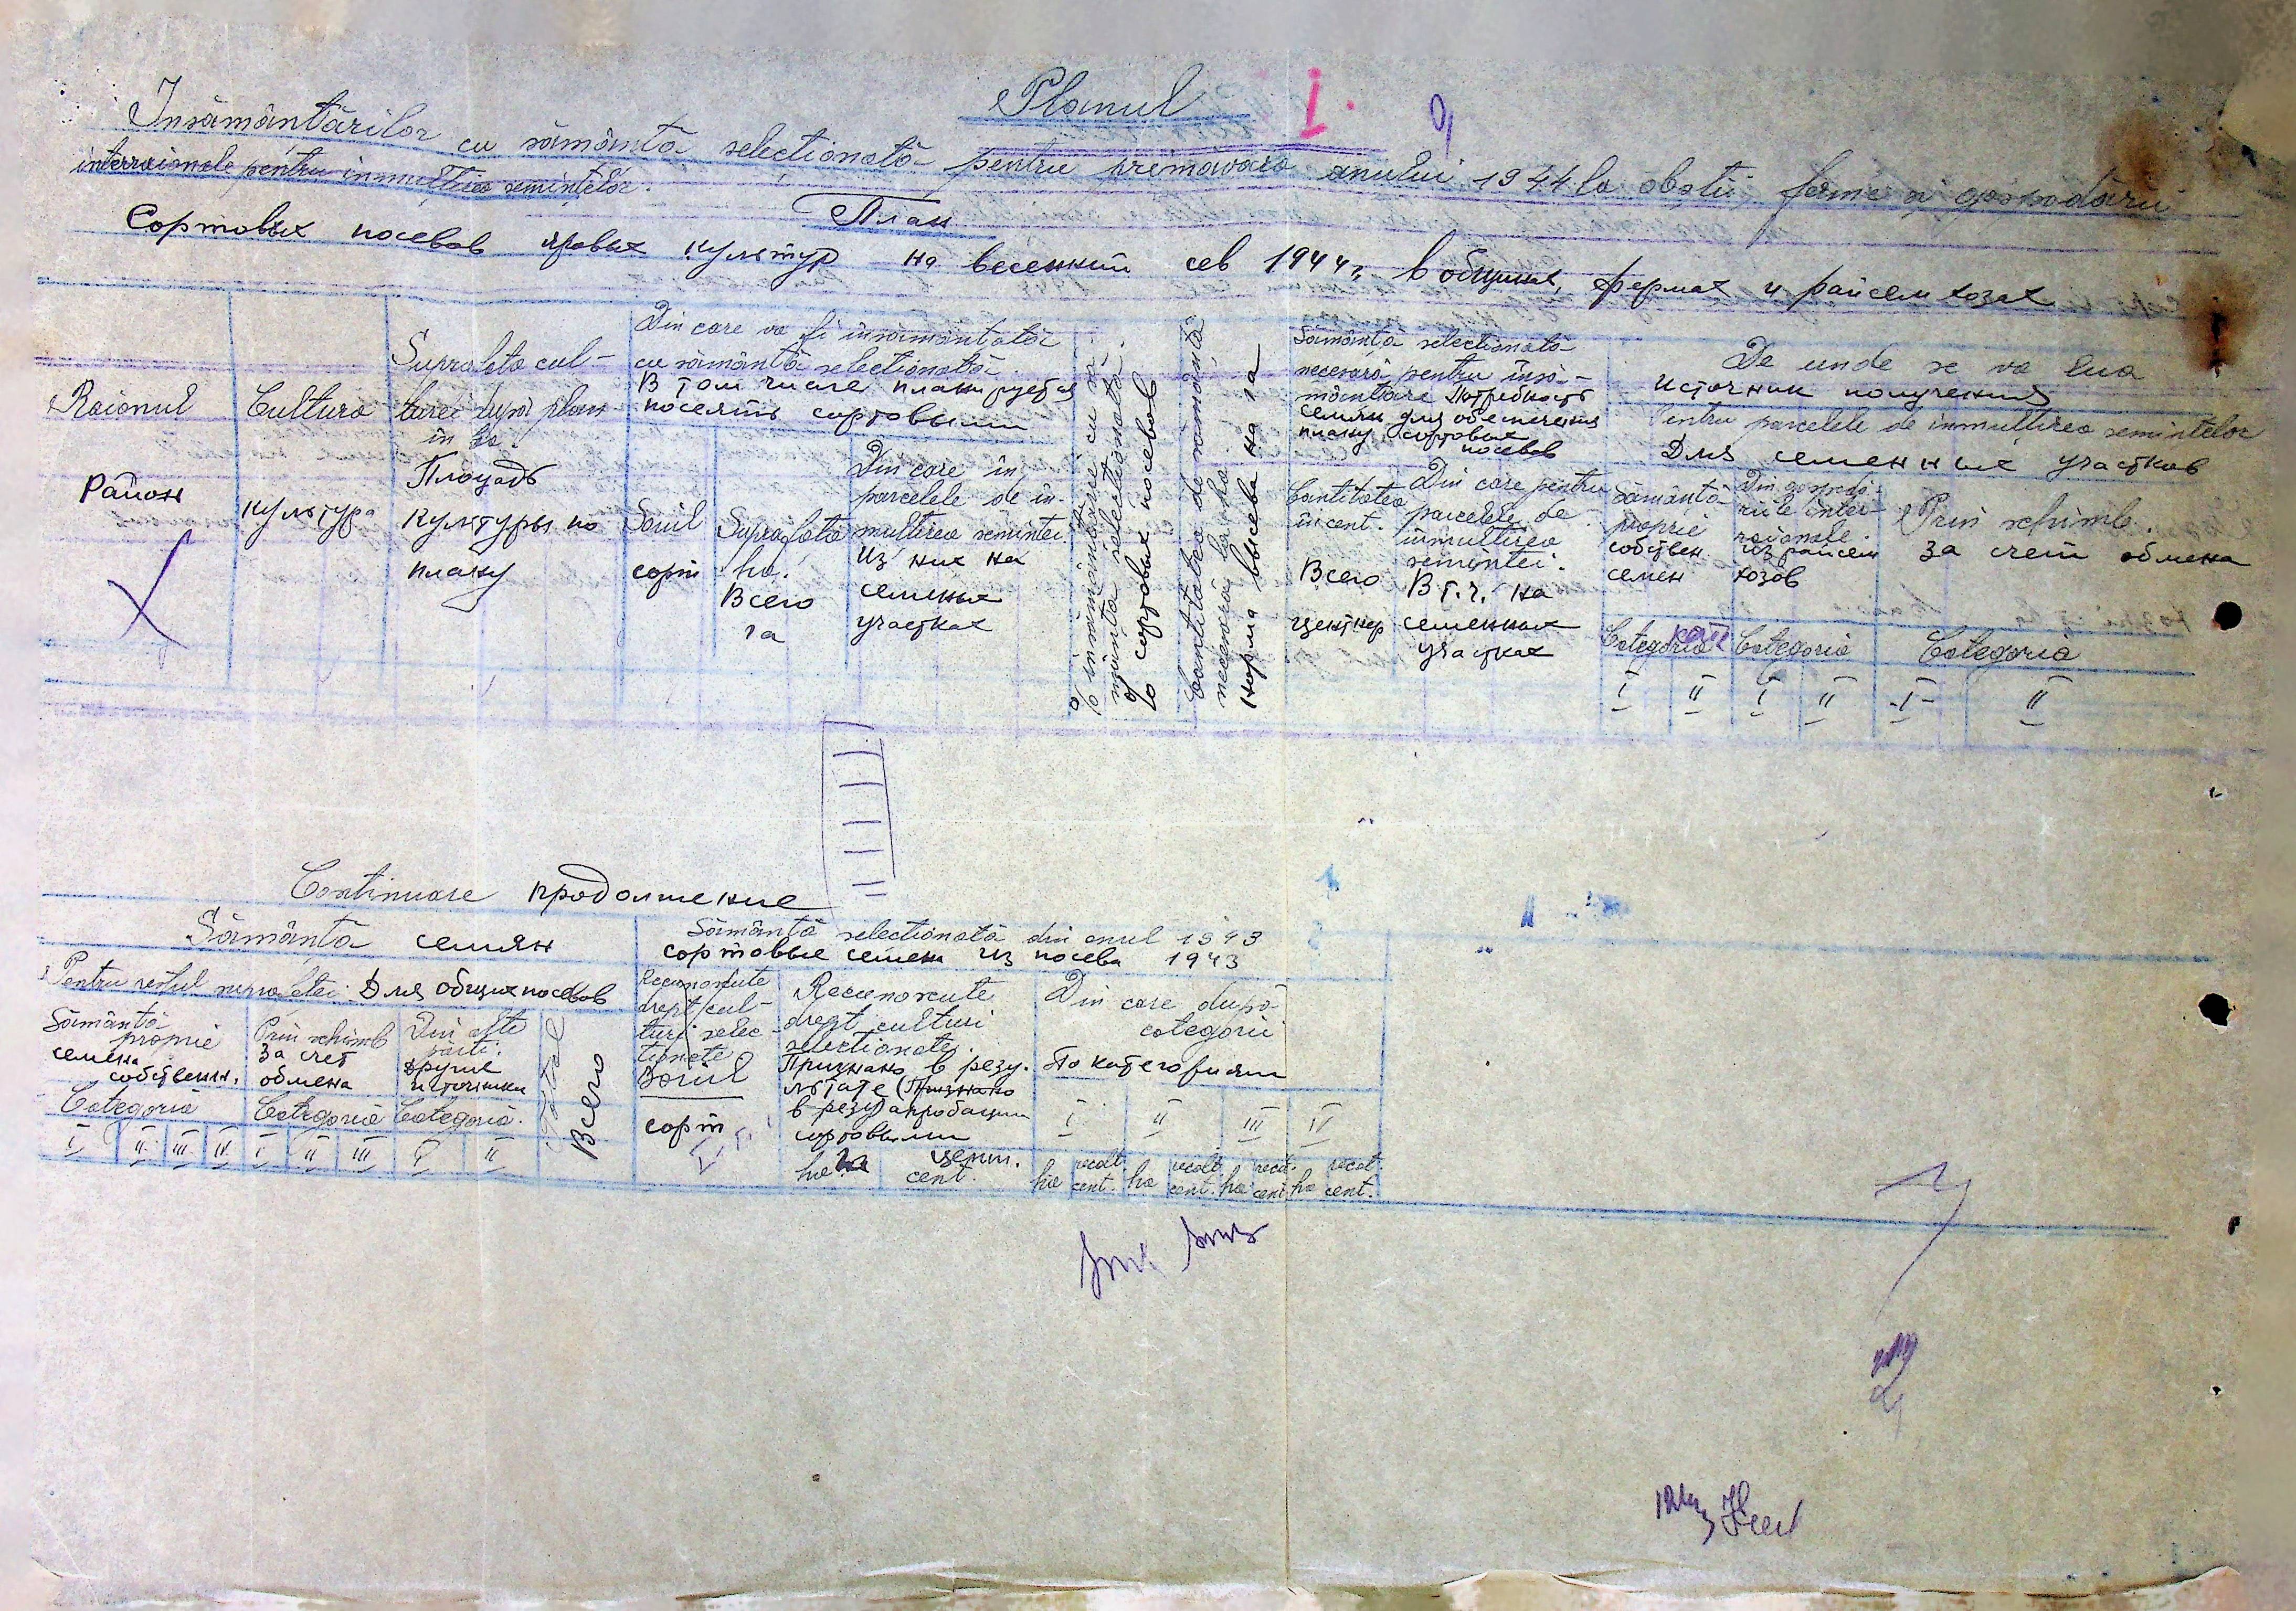 Planul I.
Însămânțărilor cu sămânță selecționată pentru primăvara anului 1944 la obștii, ferme și gospodării
interraionale pentru inmulțirea semințelor.
План
Сортовых посевов яровых культур на весенний сев 1944 г. в общинах, фермах и райсемхозах
Raionul
Район
Cultura
культура
Suprafața cul-
turei după plan
în ha.
Площадь
культуры по
плану
Din care va fi însămânțată
cu sămânță selecționată.
В том числе планируется
посеять сортовыми
Soiul
сорт
Suprafața
ha.
Всего
га
Din care în
parcelele de în-
mulțirea seminței
Из них на
семеных
участках
% însămânțărei cu să-
mânță selecționată.
% сортовых посевов
Cantitatea de sămânță
necesară la ha.
Норма высева на га
Sămânța selecționată
necesară pentru însă-
mânțare Потребность
семян для обеспечения
плану сортовых
посевов
Cantitatea
în cent.
Всего
центнер
Din care pentru
parcelele de
inmulțirea
seminței.
В т.ч. на
семенных
участках
De unde se va lua
источник получения
Pentru parcelele de inmulțirea semințelor
Для семенных участков
Sămânță
proprie
собствен.
семен
Din gospodă-
riile inter-
raionale.
из райсем
хозов
Prin schimb.
за счет обмена
Categoria Categoria Categoria
I II I II I II
Continuare продолжение
Sămânță семян
Pentru restul suprafeței Для общих посевов
Sămânță
proprie
семена
собственн.
Prin schimb
За счет
обмена
Din alte
părți.
другие
источники
Categoria Categoria Categoria.
I II III IV I II III I II
Total
Всего
Sămânță selecționată din anul 1943
сортовые семена из посева 1943
Recunoscute
drept cul-
turi selec-
ționate
Soiul
сорт
Recunoscute
drept culturi
selecționate.
Признано в резу-
льтате (Признано
в резу) апробации
сортовыми
ha га cent. центн.
Din care după
categorii
По категориям
I II III IV
ha recolt. cent. ha recolt. cent. ha recolt. cent. ha recolt. cent.